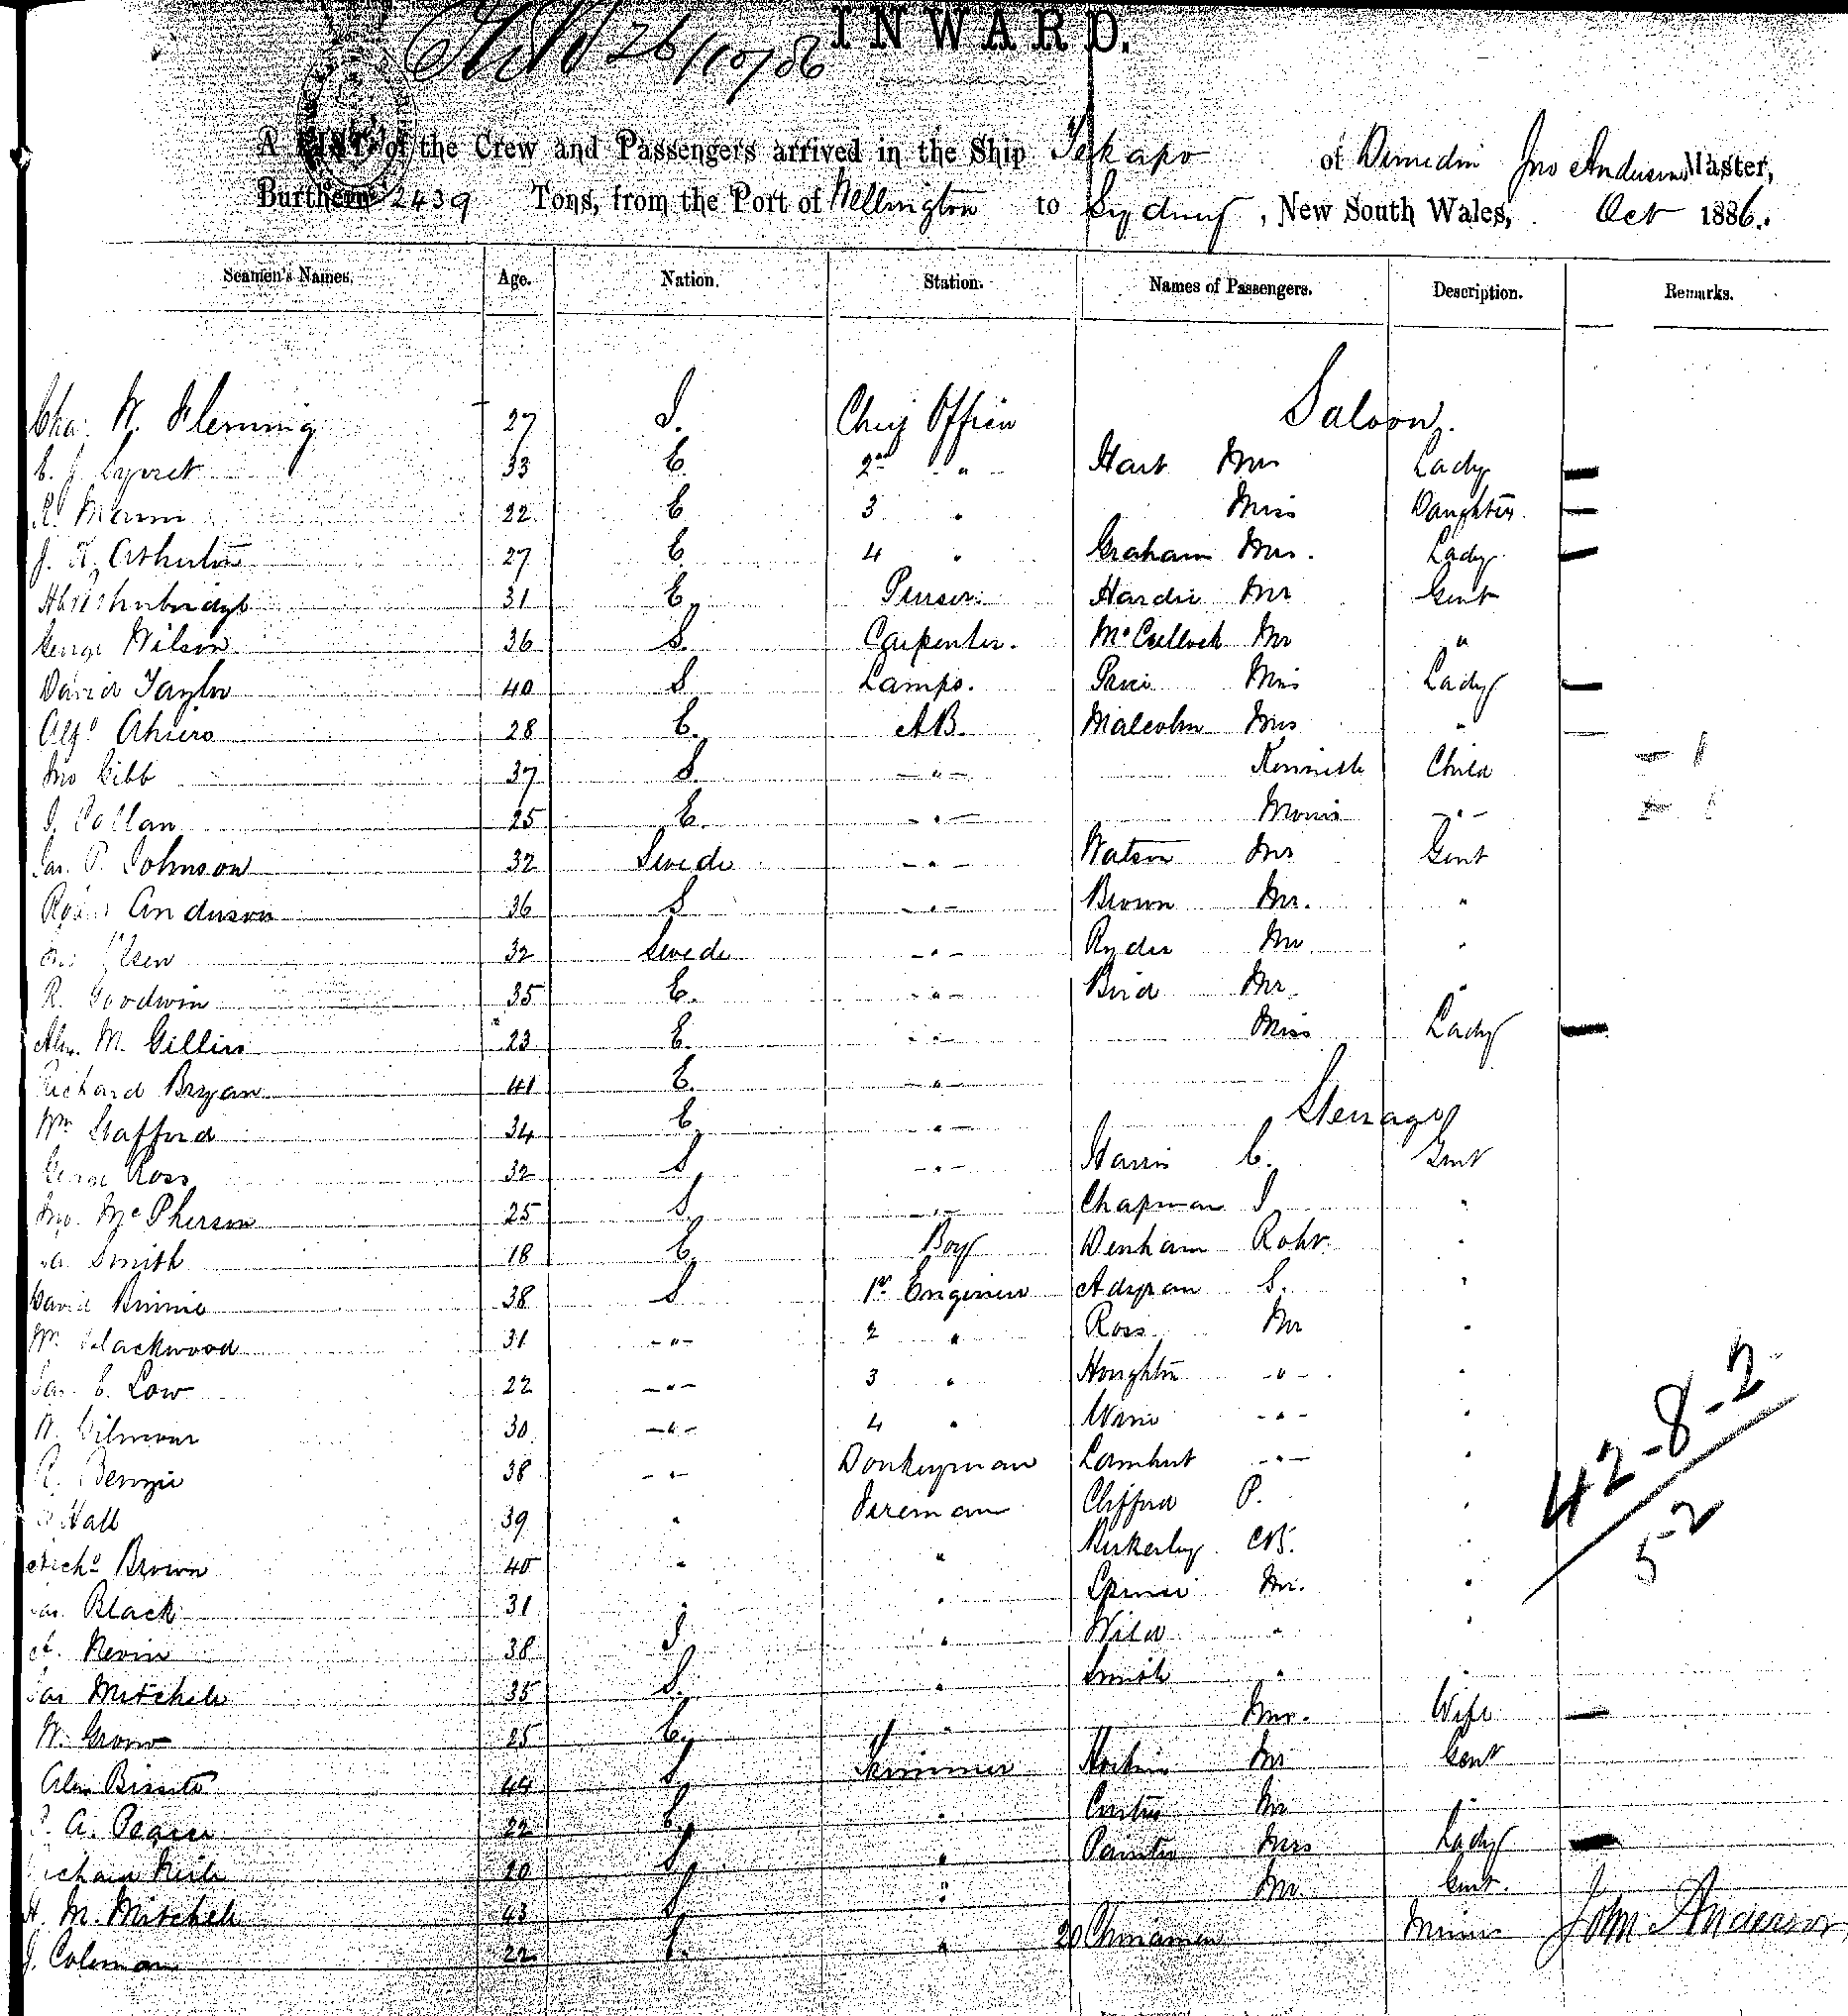 INWARD.
26/10/86
A LIST of the Crew and Passengers arrived in the Ship Tekapo of Dunedin Jno Anderson Master,
Burthern 2439 Tons, from the Port of Wellington to Sydney, New South Wales, Oct 1886.
Seamen's Names. Age. Nation. Station. Names of Passengers. Description. Remarks.
Chas. W. Fleming 27 S. Chief Officer Saloon.
33 E. 2nd " Hart Mrs Lady
R. Mann 22 E 3 " Miss Daughter
27 E. 4 " Graham Mrs. Lady
31 E. Purser. Hardie Mr Gent
George Wilson 36 S. Carpenter. McCullock Mr "
David Taylor 40 S Lamps. Price Miss Lady
28 E. AB. Malcolm Mrs "
Jno Gibb 37 S. -"- Kenneth Child
25 E. -"- Morris -"-
Jas. P. Johnson 32 Swede -"- Watson Mr Gent
Anderson 36 S -"- Brown Mr. "
Olsen 32 Swede -"- Ryder Mr "
R. Goodwin 35 E. -"- Bird Mr. "
Alex. M. Gillies 23 E. -"- Miss Lady
Richard Bryan 41 E. -"-
Wm Stafford 34 E. -"- Steerage
George Ross 32 S. -"- Harris C. Gent
Jno. McPherson 25 S. -"- Chapman J "
Smith 18 E. Boy Denham Robt. "
David Binnie 38 S 1st Engineer S. "
Wm Blackwood 31 -"- 2 " Ross Mr "
Jas. C. Low 22 -"- 3 " Houghton -"- "
W. Gilmour 30 -"- 4 " -"- "
R. 38 -"- Donkeyman Lambert -"- "
Hall 39 " Fireman Clifford P. "
Richd Brown 40 " " "
Jas. Black 31 " " Mr. "
Nevin 38 I " Wild " "
Jas Mitchell 35 S. " Smith " "
W. 25 E. " Mrs. Wife
Alex 44 S. Trimmer Mr Gent
A. Pearce 22 E. " Curtis Mr "
20 S. " Painter Mrs Lady
H. M. Mitchell 43 S. " Mr. Gent.
J. Coleman 22 E. " 20 Chinamen John Anderson
42-8-2
52